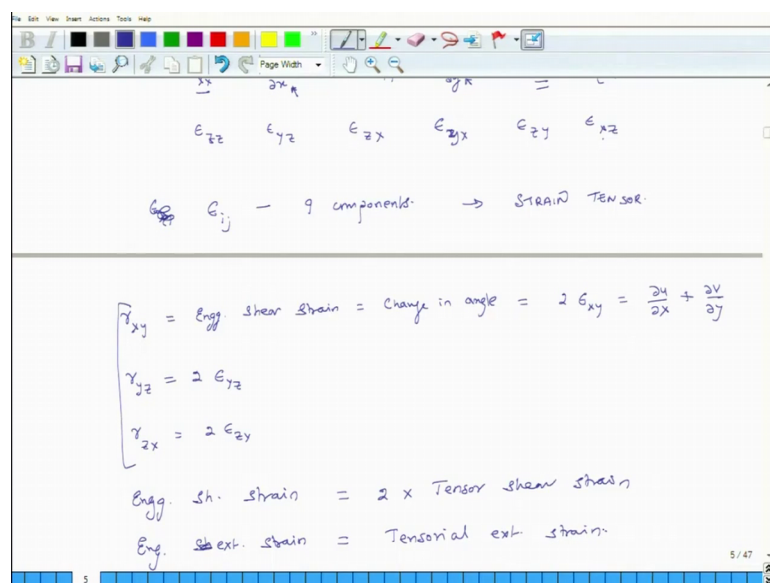 File Edit View Insert Actions Tools Help
B I
Page Width
xx ∂x ∂y =
ϵzz ϵyz ϵzx ϵyx ϵzy ϵxz
ϵij - 9 components. → STRAIN TENSOR.
γxy = Engg. shear strain = Change in angle = 2 ϵxy = ∂u/∂x + ∂v/∂y
γyz = 2 ϵyz
γzx = 2 ϵzx
Engg. sh. strain = 2 x Tensor shear strain
Eng. ext. strain = Tensorial ext. strain.
5 / 47
5